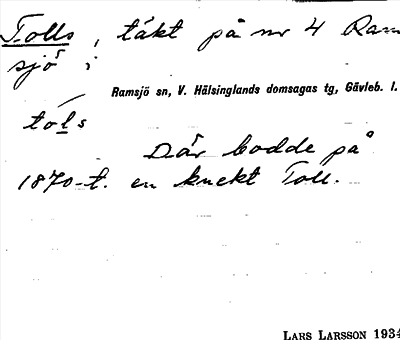 Tolls, täkt på nr 4 Ram
sjö i
Ramsjö sn, V. Hälsinglands domsagas tg, Gävleb. l.
tóls
Där bodde på
1870-t. en knekt Toll.
LARS LARSSON 1934